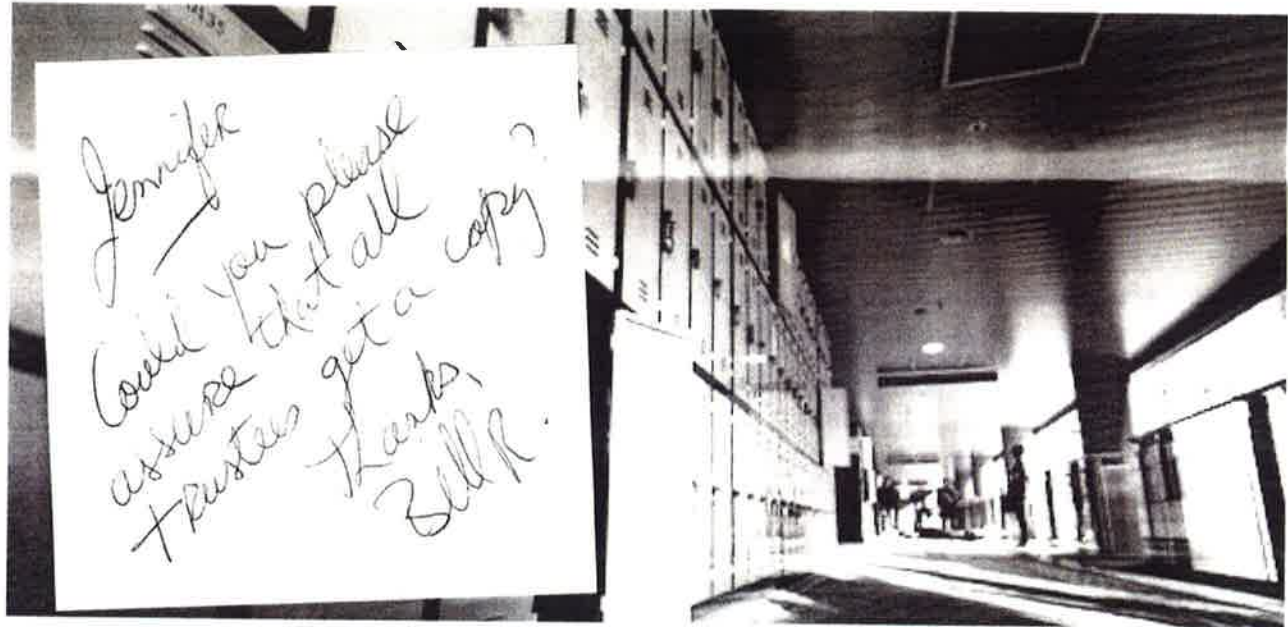 Jennifer
Could you please
assure that all
trustees get a copy?
Thanks,
Bill R.